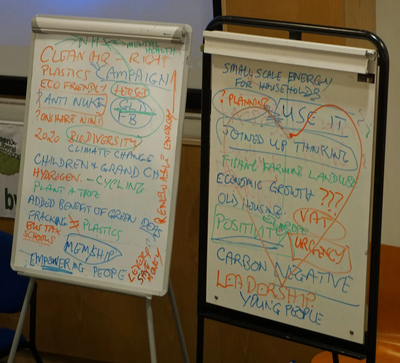 NHS MENTAL HEALTH
CLEAN AIR - RIGHT
PLASTICS CAMPAIGN
ECO FRIENDLY HOUSES
? ANTI NUKE
GLD
FB
? ONSHORE WIND
2030 BIODIVERSITY
CLIMATE CHANGE
CHILDREN & GRAND CH
HYDROGEN. - CYCLING
PLANT A TREE
ADDED BENEFIT OF GREEN IDEAS
FRACKING PLASTICS
BUS TAX
SCHOOLS
MEMSHIP
EMPOWERING PEOPLE
RENEWABLE ENERGY
SAVE
MONEY
SMALL SCALE ENERGY
FOR HOUSEHOLDS
PLANNING
USE IT
JOINED UP THINKING
FISHING FARMING LANDUSE
ECONOMIC GROWTH ???
OLD HOUSING. VAT
POSITIVITY
URGENCY
CARBON NEGATIVE
LEADERSHIP
YOUNG PEOPLE